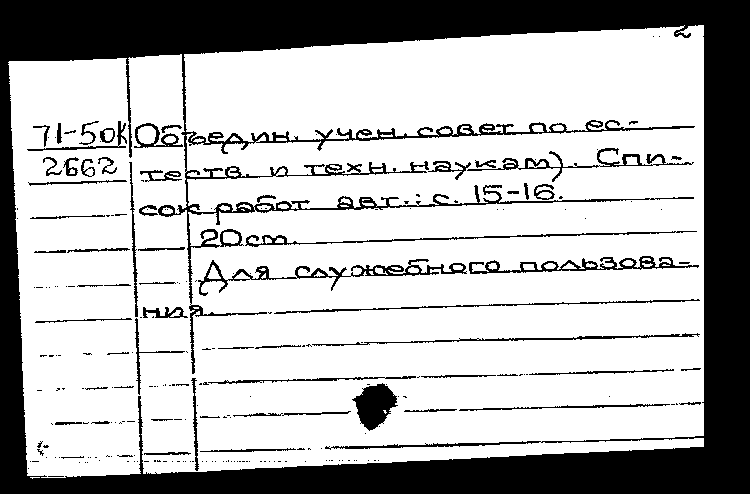 2
71-5ок Объедин. учен. совет по ес-
2662 теств. и техн. наукам). Спи-
сок работ авт.: с. 15-16.
20см.
Для служебного пользова-
ния.